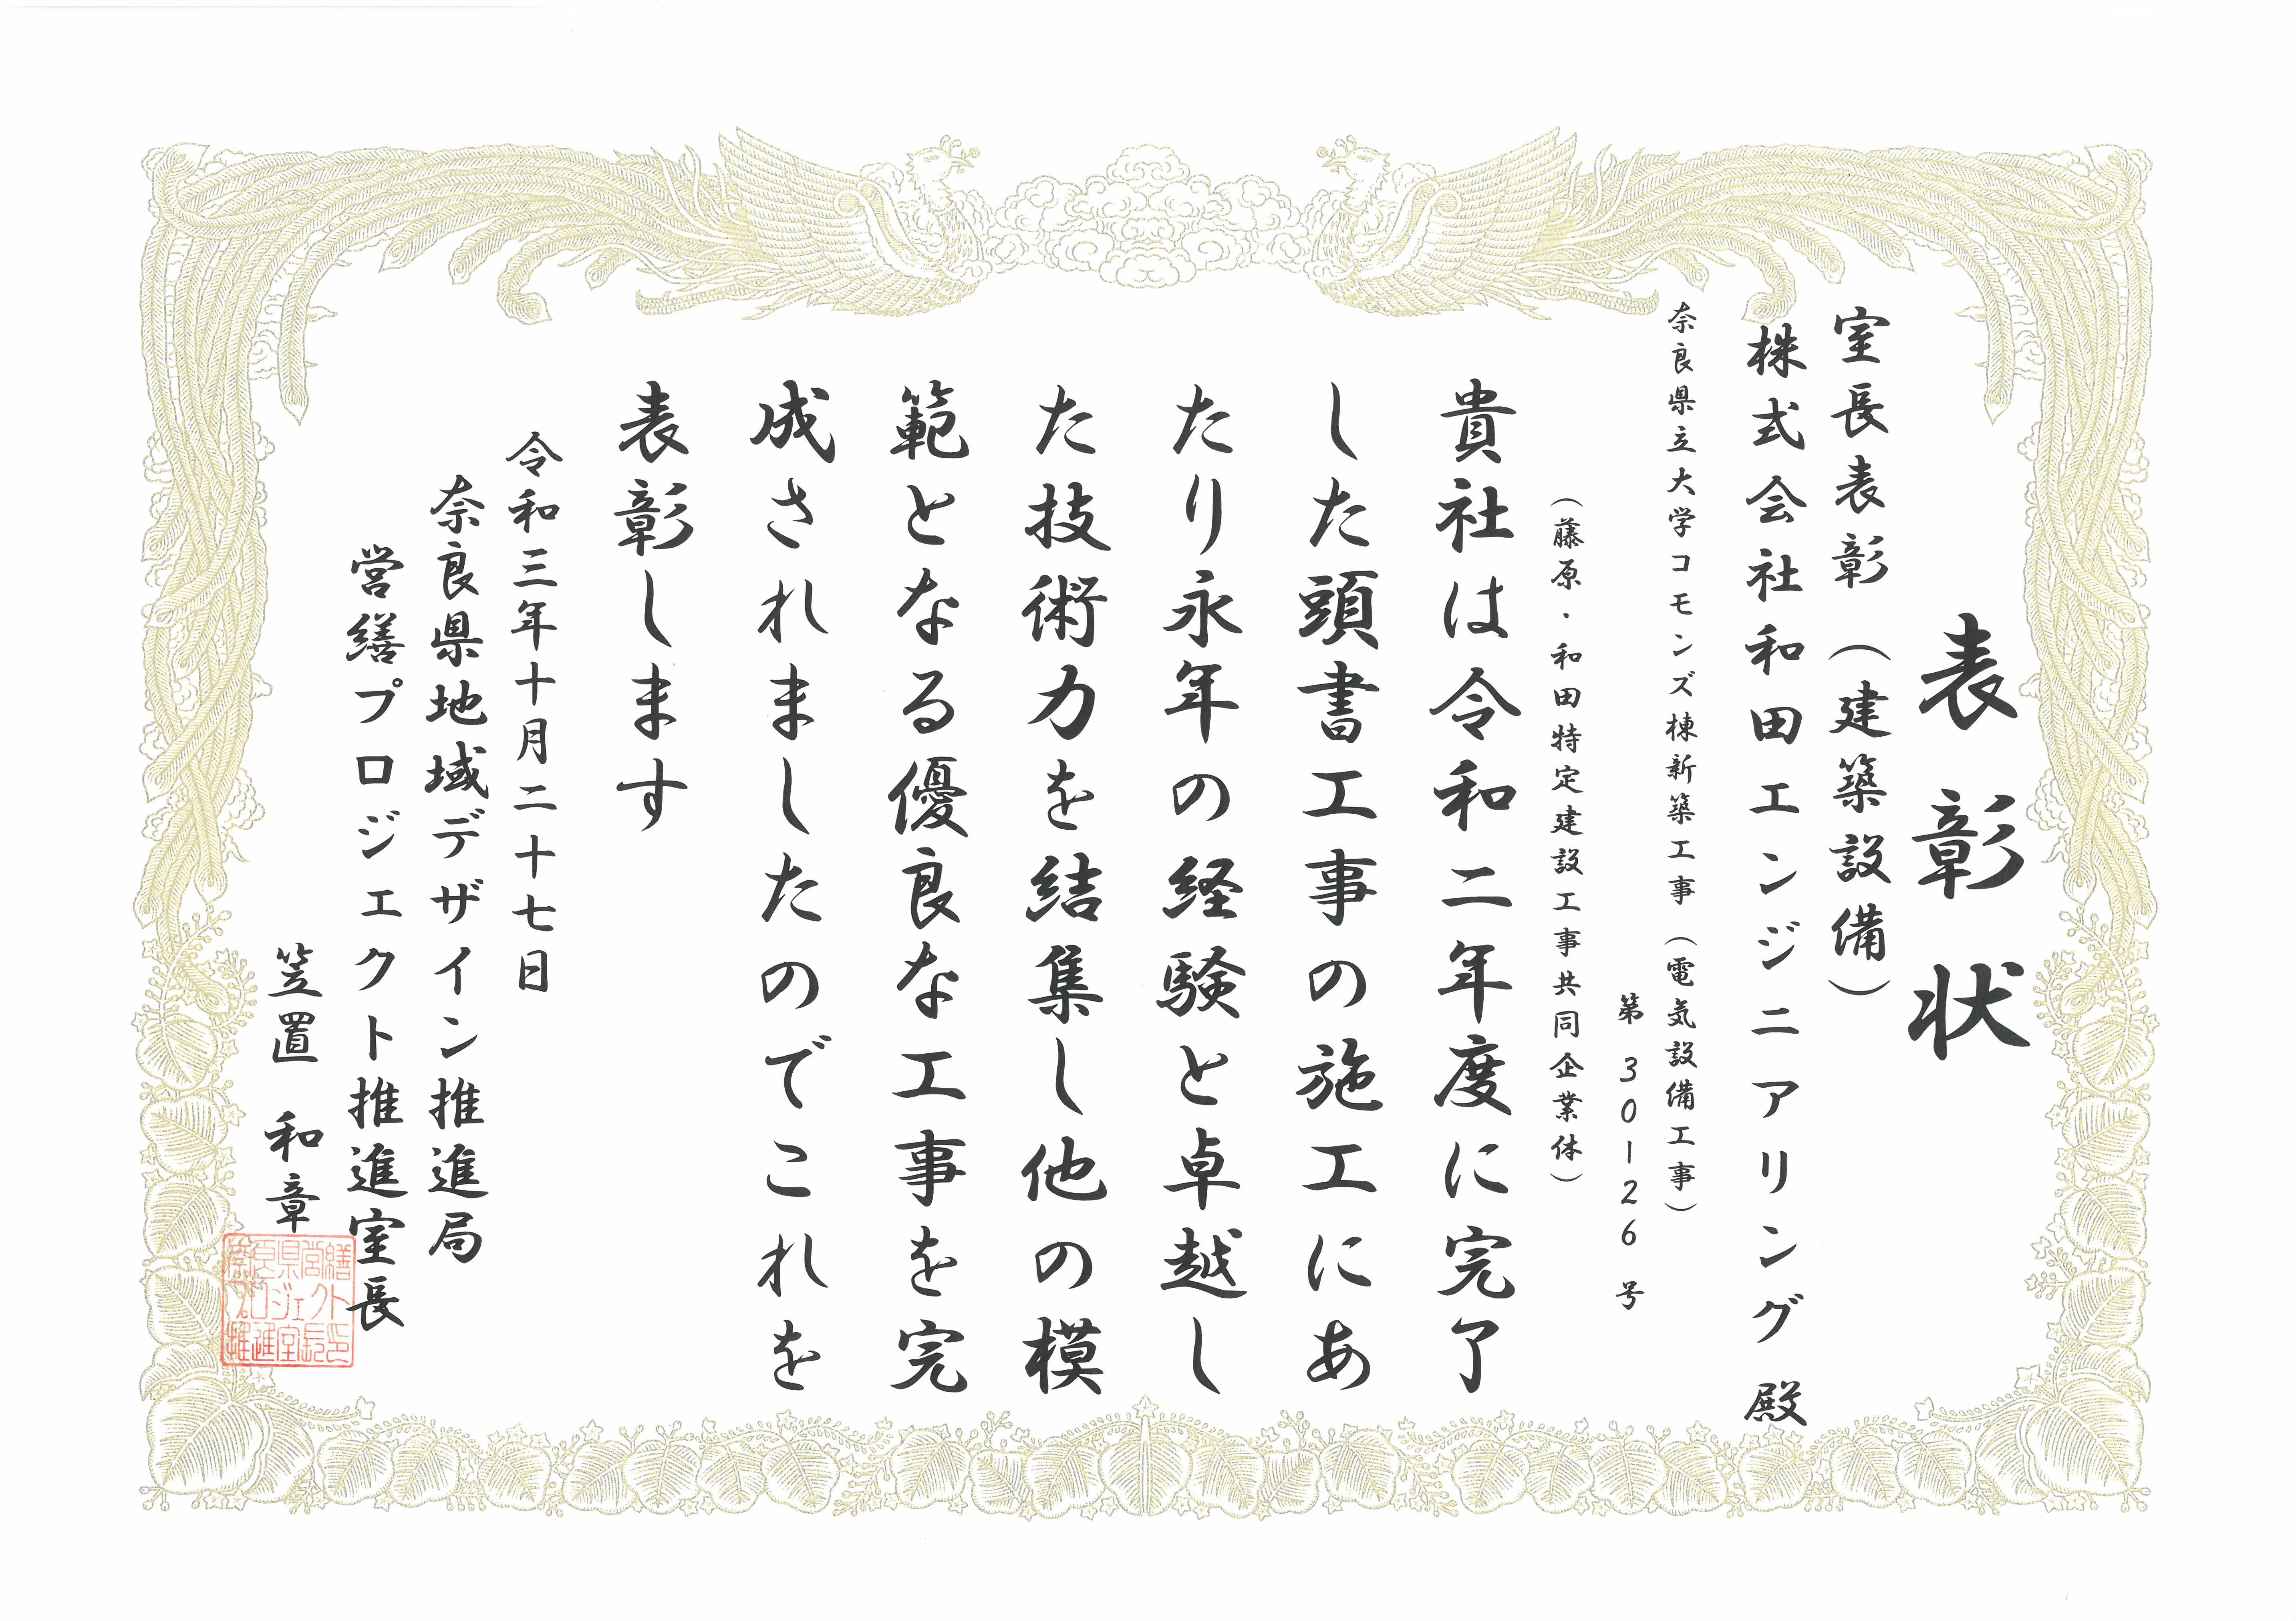 表彰状
室長表彰（建築設備）
株式会社和田エンジニアリング 殿
奈良県立大学コモンズ棟新築工事（電気設備工事）
第 30-126 号
（藤原・和田特定建設工事共同企業体）
貴社は令和二年度に完了
した頭書工事の施工にあ
たり永年の経験と卓越し
た技術力を結集し他の模
範となる優良な工事を完
成されましたのでこれを
表彰します
令和三年十月二十七日
奈良県地域デザイン推進局
営繕プロジェクト推進室長
笠置 和章